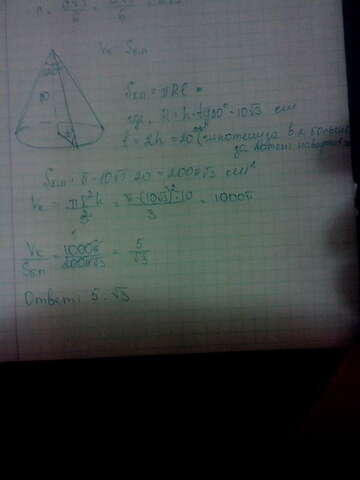 Vк Sбп
Sбп = πRl
где, R = h · tg60° = 10√3 см
l = 2h = 20 (гипотенуза в 2 больше
за катет
10
Sбп = π · 10√3 · 20 = 200π√3 см²
Vк = πR²h/3 = π·(10√3)²·10/3 = 1000π
Vк/Sбп = 1000π/200π√3 = 5/√3
Ответ: 5 : √3